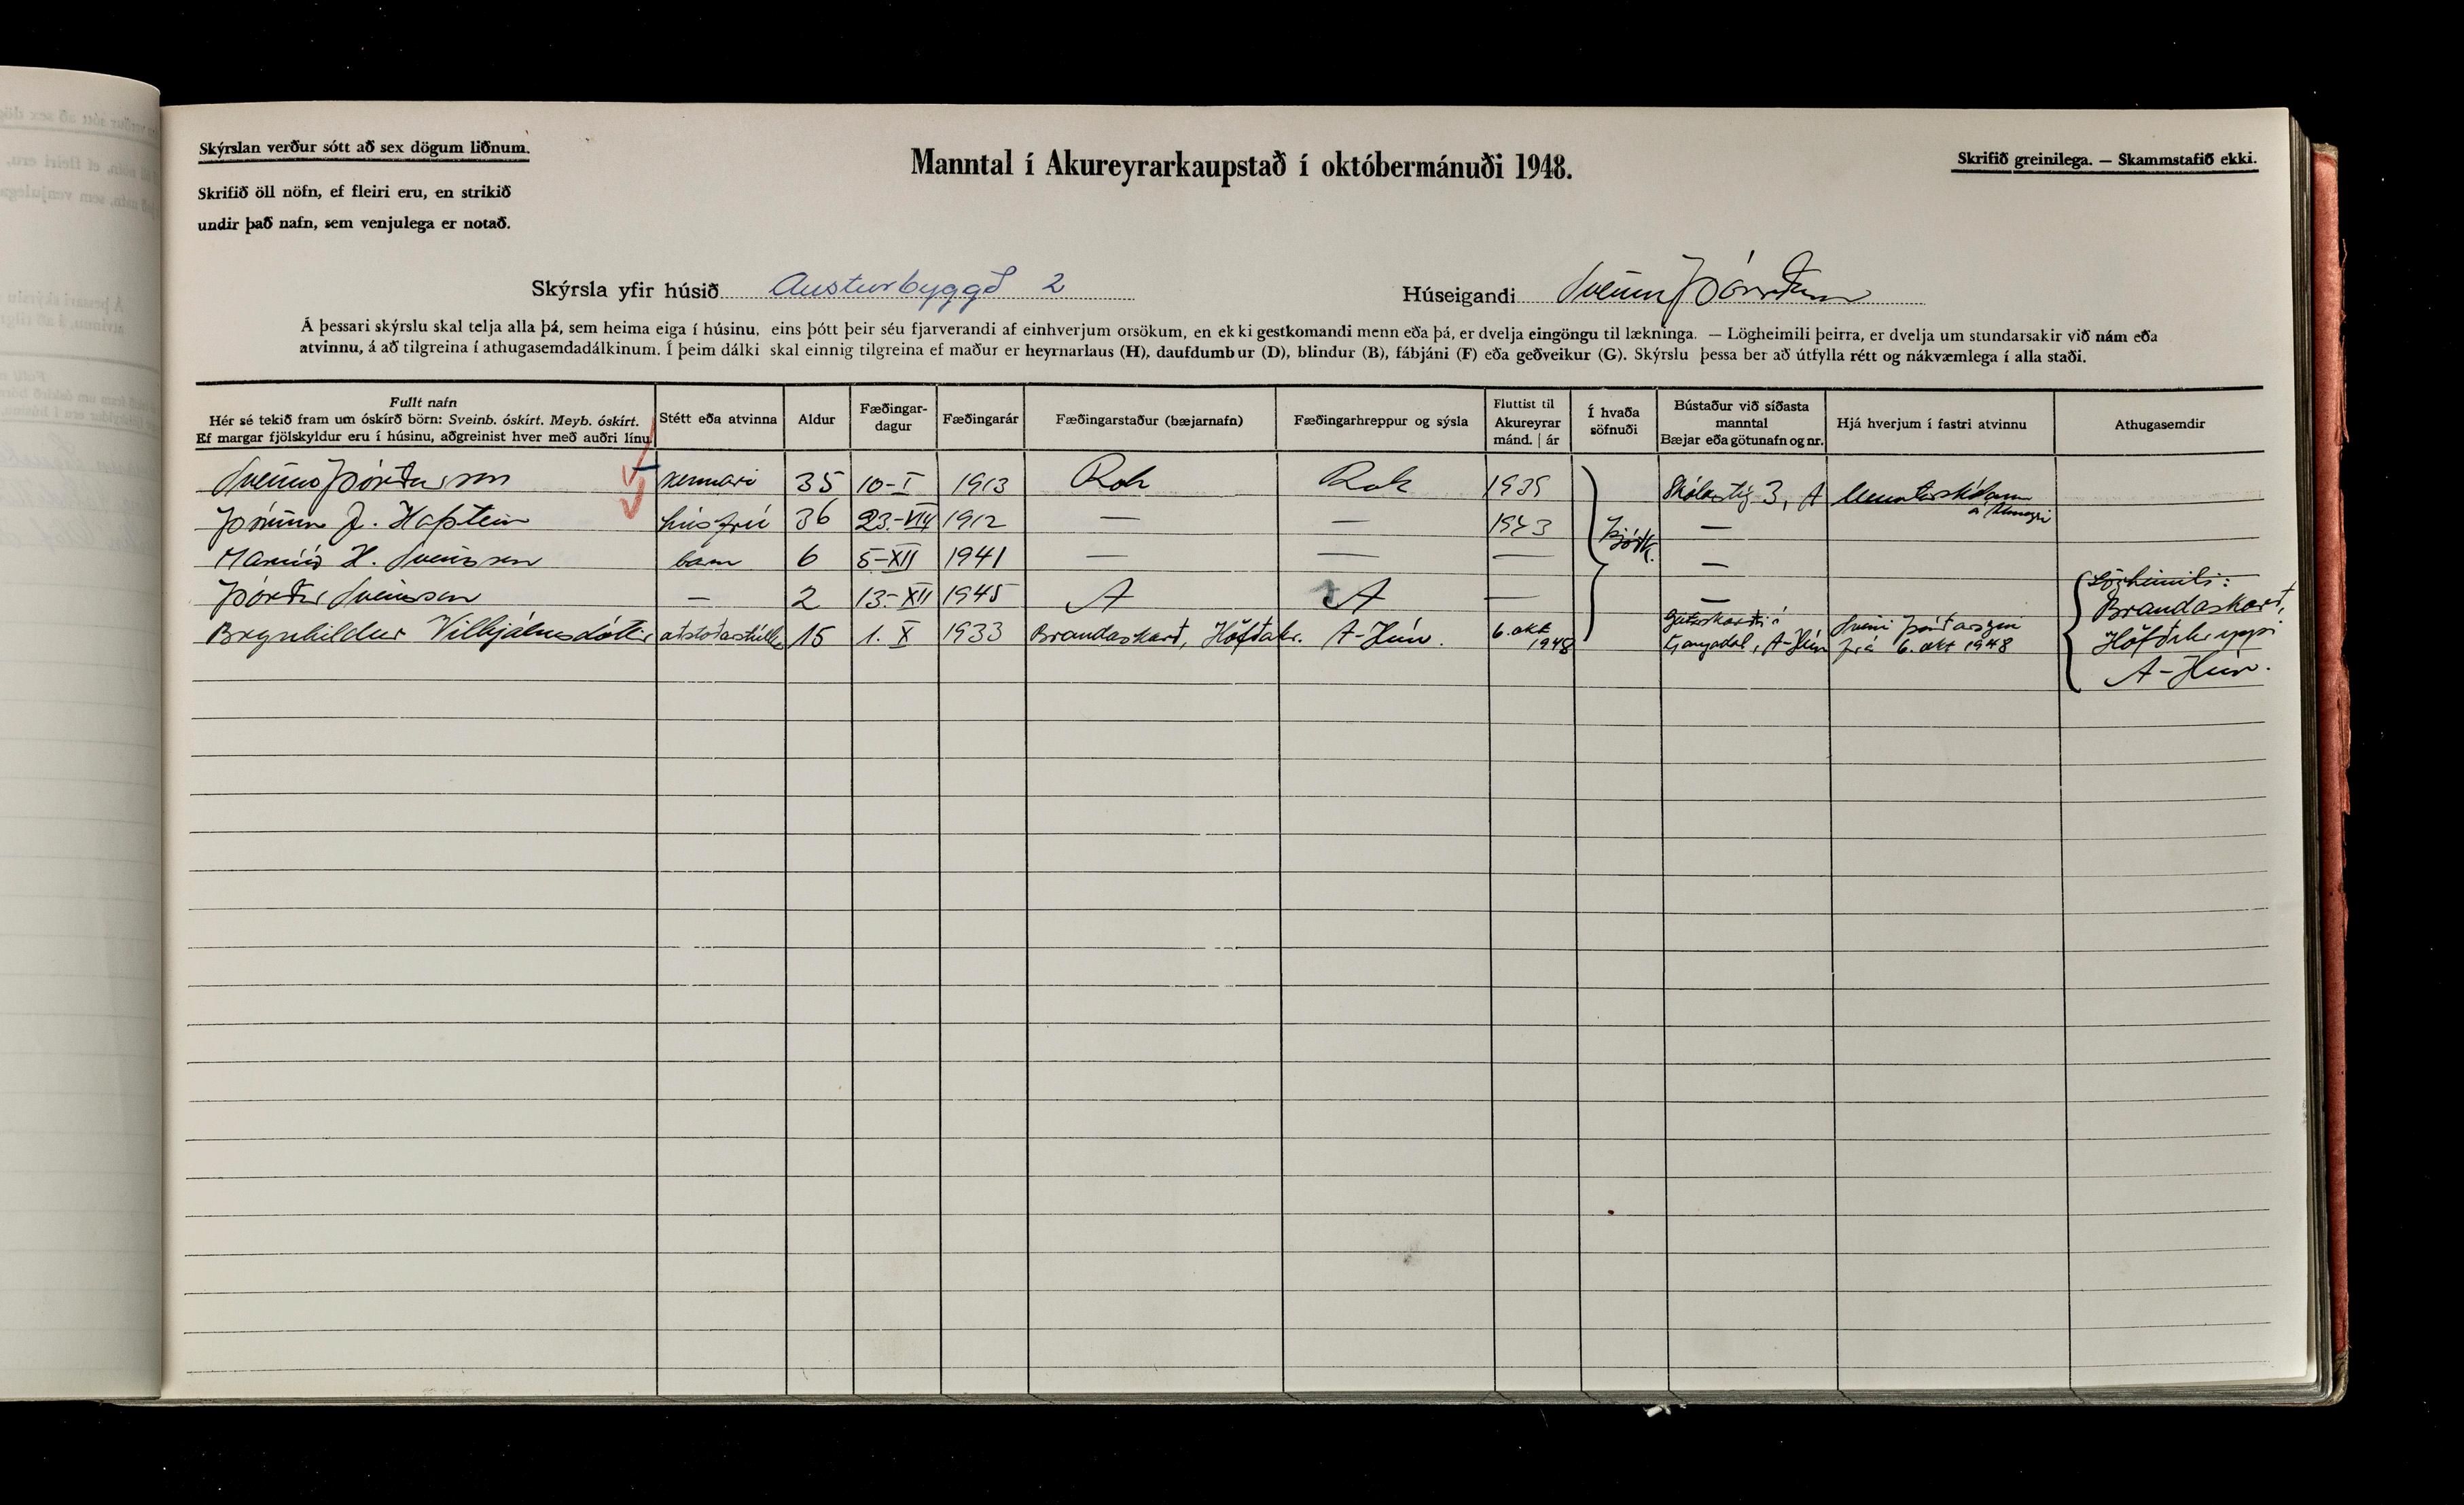 Skýrslan verður sótt að sex dögum liðnum.
Skrifið öll nöfn, ef fleiri eru, en strikið
undir það nafn, sem venjulega er notað.
Manntal í Akureyrarkaupstað í októbermánuði 1948.
Skrifið greinilega. — Skammstafið ekki.
Skýrsla yfir húsið Austurbyggð 2
Húseigandi Sveinn Þórðarson
Á þessari skýrslu skal telja alla þá, sem heima eiga í húsinu, eins þótt þeir séu fjarverandi af einhverjum orsökum, en ekki gestkomandi menn eða þá, er dvelja eingöngu til lækninga. — Lögheimili þeirra, er dvelja um stundarsakir við nám eða
atvinnu, á að tilgreina í athugasemdadálkinum. Í þeim dálki skal einnig tilgreina ef maður er heyrnarlaus (H), daufdumbur (D), blindur (B), fábjáni (F) eða geðveikur (G). Skýrslu þessa ber að útfylla rétt og nákvæmlega í alla staði.
Fullt nafn
Hér sé tekið fram um óskírð börn: Sveinb. óskírt. Meyb. óskírt.
Ef margar fjölskyldur eru í húsinu, aðgreinist hver með auðri línu.
Stétt eða atvinna
Aldur
Fæðingar-
dagur
Fæðingarár
Fæðingarstaður (bæjarnafn)
Fæðingarhreppur og sýsla
Fluttist til
Akureyrar
mánd. | ár
Í hvaða
söfnuði
Bústaður við síðasta
manntal
Bæjar eða götunafn og nr.
Hjá hverjum í fastri atvinnu
Athugasemdir
Sveinn Þórðarson kennari 35 10-I 1913 Rvk Rvk 1939 Skólastíg 3, A Menntaskólanum
á Akureyri
Þórunn J. Hafstein húsfrú 36 23.-VIII 1912 — — 1943 —
Þjóðk.
Magnús H. Sveinsson barn 6 5-XII 1941 — — — —
Þórður Sveinsson — 2 13.-XII 1945 A A — —
Brynhildur Vilhjálmsdóttir aðstoðarstúlka 15 1. X 1933 Brandaskarð, Höfðahr. A-Hún. 6. okt
1948
Langadal, A-Hún
Sveini Þórðarsyni
frá 6. okt 1948
Lögheimili:
Brandaskarð,
Höfðahreppi
A-Hún.